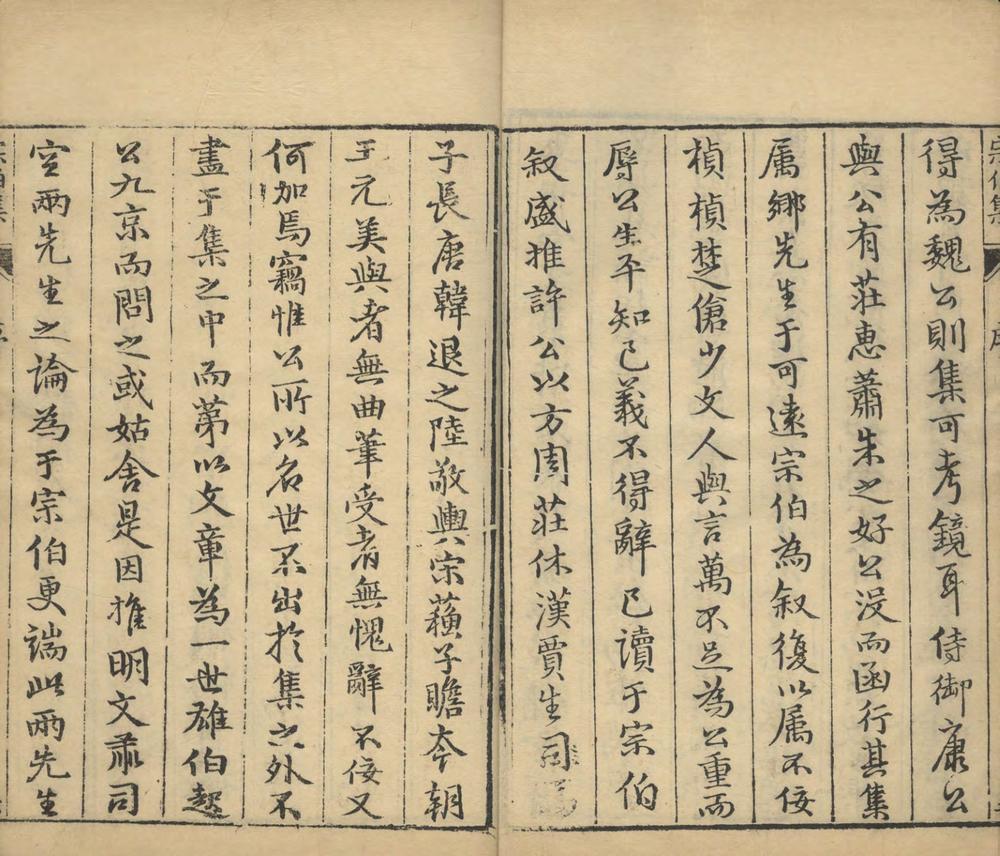 得為魏公則集可考鏡耳侍御康公
與公有莊惠蕭朱之好公沒而函行其集
属鄉先生于可遠宗伯為叙復以属不佞
楨楨楚傖少文人與言萬不足為公重而
辱公生平知己義不得辭已讀于宗伯
叙盛推許公以方周莊休漢賈生司馬
子長唐韓退之陸敬輿宋蘓子瞻夲朝
王元美與者無曲筆受者無愧辭不佞又
何加焉竊惟公所以名世不出於集之外不
盡于集之中而第以文章為一世雄伯起
公九京而問之或姑舍是因推明文肅司
空兩先生之論為于宗伯更端此兩先生